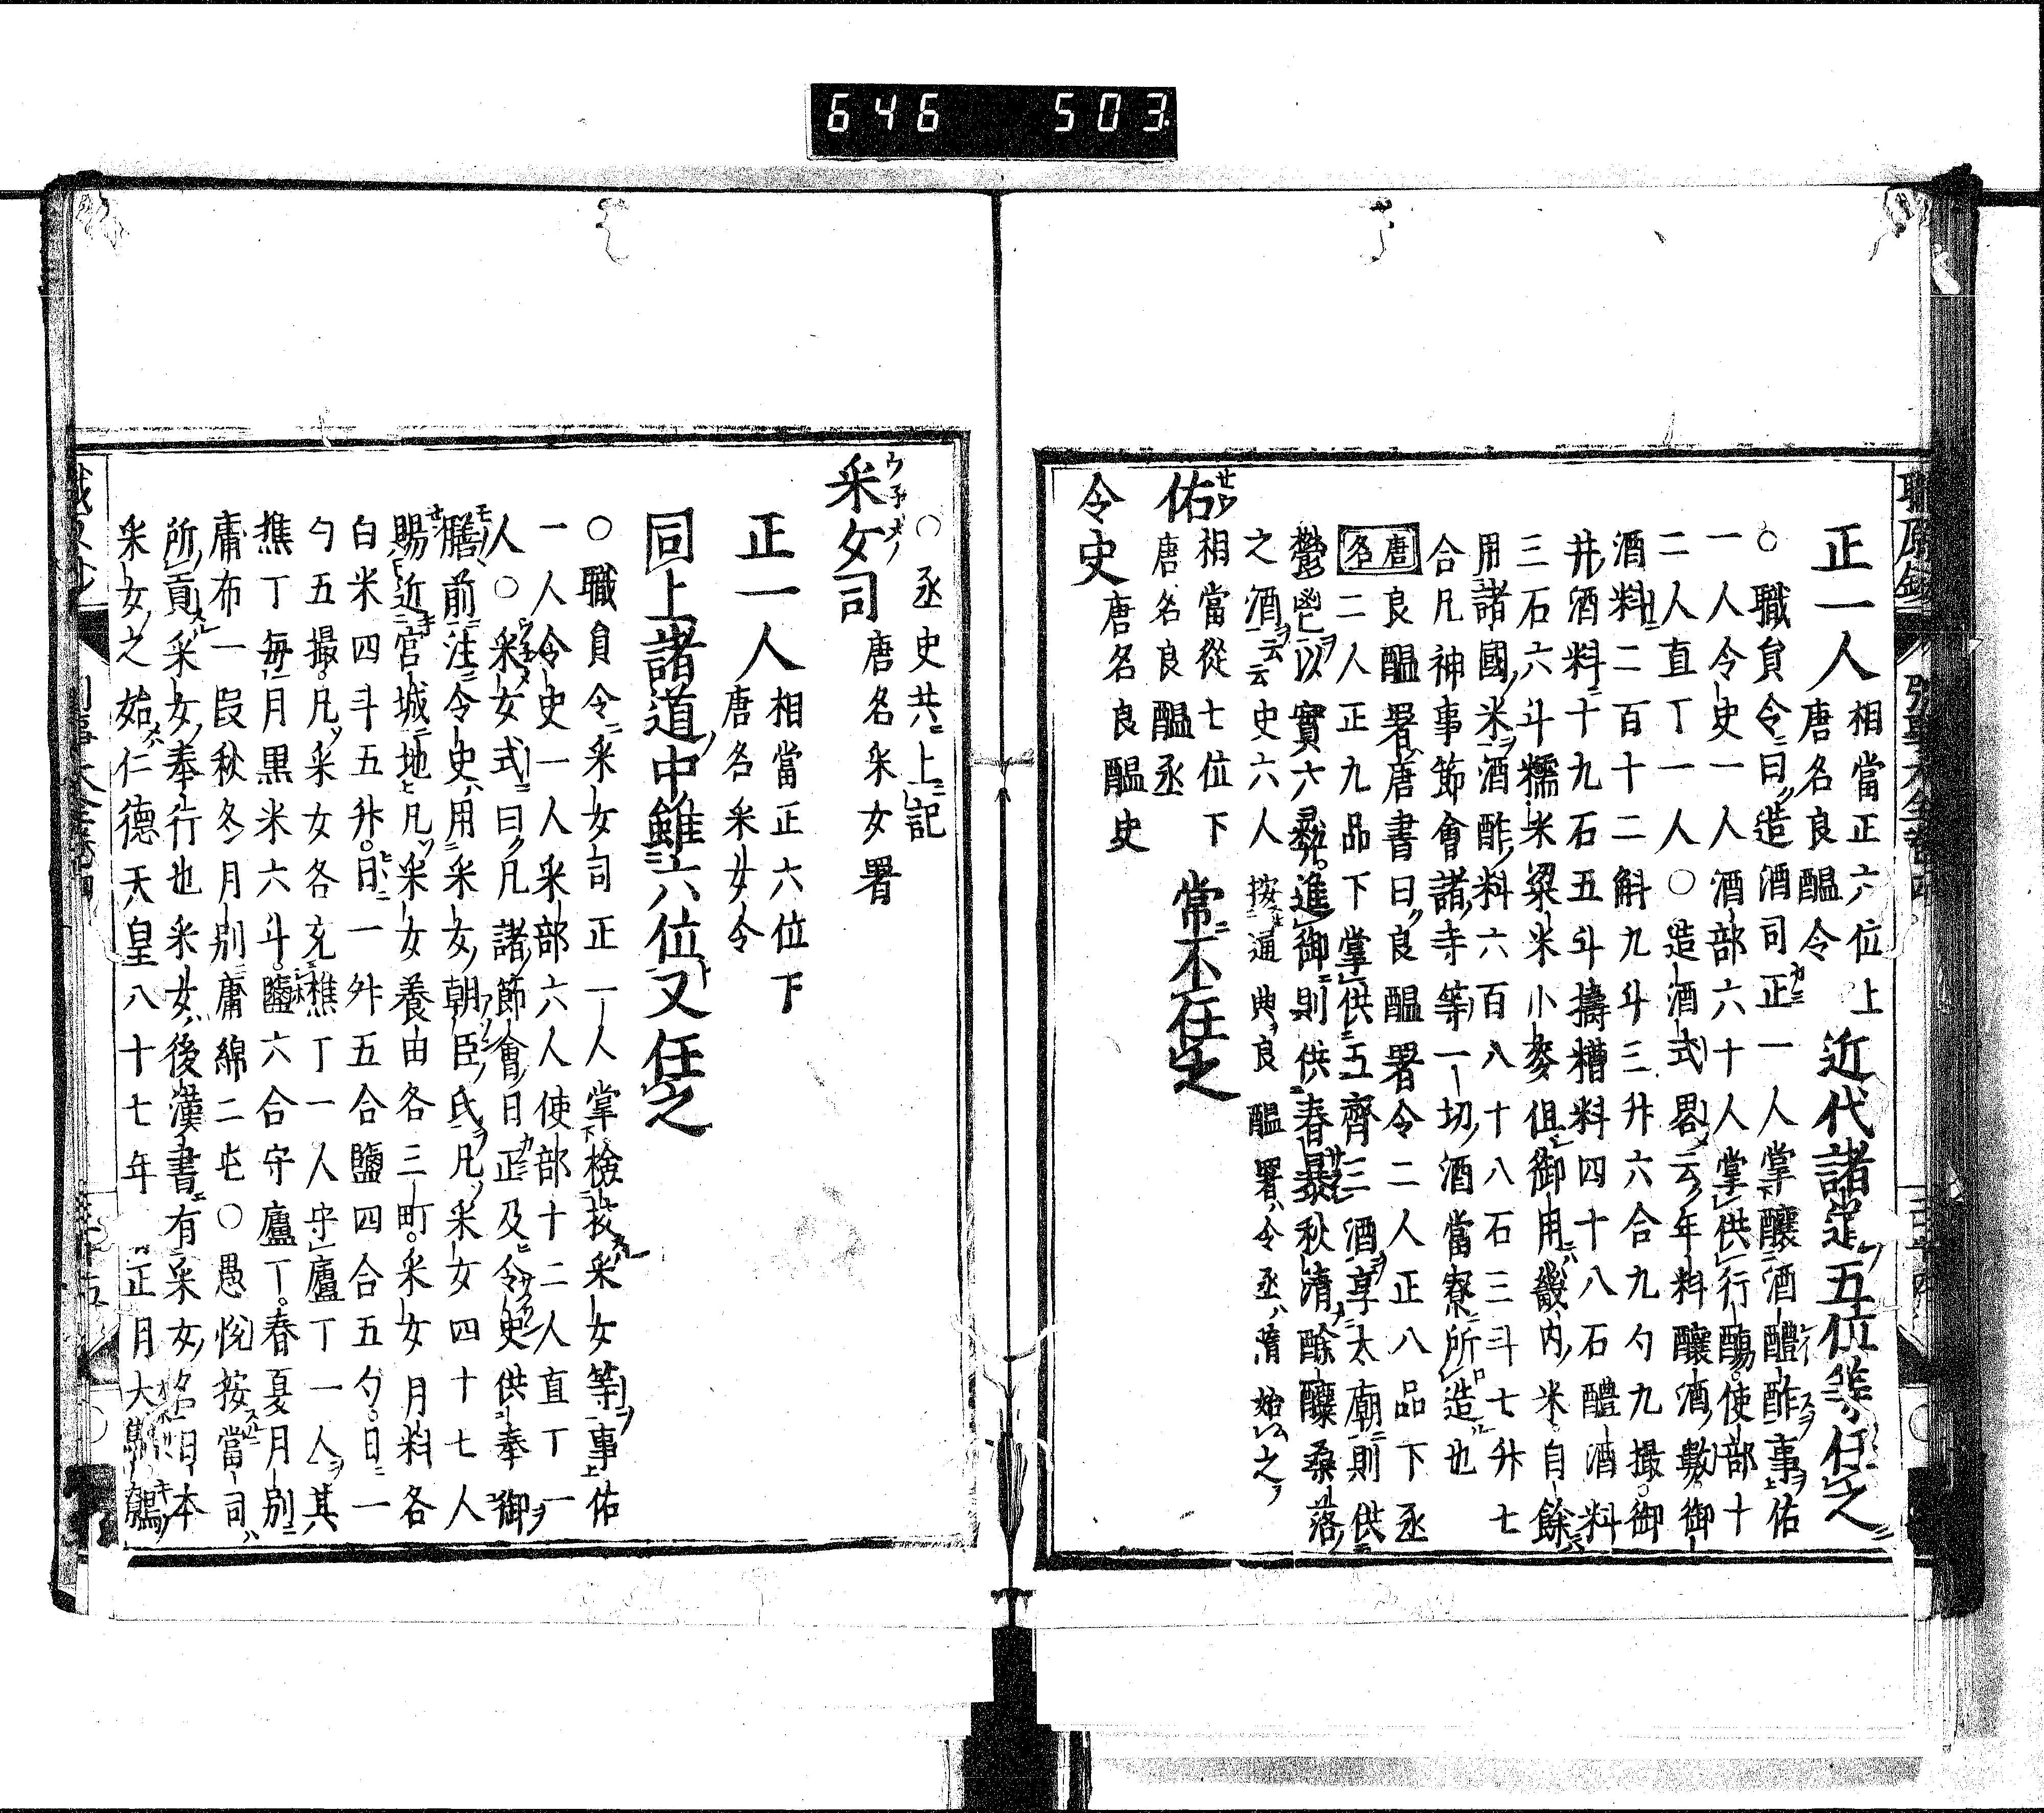 646 503
正一人 相當正六位上 近代諸道五位等任之
唐名良醞令
○職員令曰造酒司正一人掌釀酒醴酢事佑
一人令史一人酒部六十人掌供行觴使部十
二人直丁一人○造酒式畧云年料釀酒數御
酒料二百十二斛九斗三升六合九勺九撮御
井酒料十九石五斗擣糟料四十八石醴酒料
三石六斗糯米粱米小麥但御用畿内米自餘
用諸國米酒酢料六百八十八石三斗七升七
合凡神事節會諸寺等一切酒當寮所造也
唐名 良醞署唐書曰良醞署令二人正八品下丞
二人正九品下掌供五齊三酒享太廟則供
鬱鬯以實六彝進御則供春暴秋清酴釀桑落
之酒云云史六人 按通典良醞署令丞隋始之
佑 相當從七位下 常不任之
唐名良醞丞
令史 唐名良醞史
○丞史共上記
采女司 唐名采女署
正一人 相當正六位下
唐名采女令
同上諸道中雖六位又任之
○職員令采女司正一人掌檢挍采女等事佑
一人令史一人采部六人使部十二人直丁一
人○采女式曰凡諸節會日正及令史供奉御
膳前注令史用采女朝臣氏凡采女四十七人
賜近宮城地凡采女養田各三町采女月料各
白米四斗五升日一升五合鹽四合五勺日一
勺五撮凡采女各充樵丁一人守廬丁一人其
樵丁毎月黒米六斗鹽六合守廬丁春夏月別
庸布一段秋冬月別庸綿二屯○愚悅按當司
所貢采女奉行也采女後漢書有采女名日本
采女之始仁德天皇八十七年正月大鷦鷯